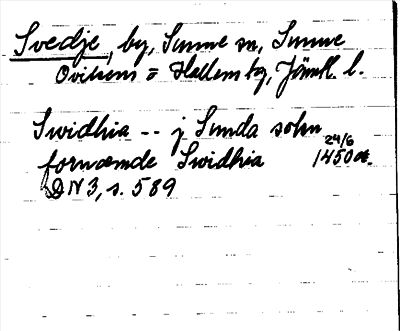 Svedje, by, Sunne sn, Sunne
Ovikens o Hallens tg, Jämtl. l.
Swidhia -- j Sunda sokn
24/6
fornæmde Swidhia 1450
DN 3, s. 589